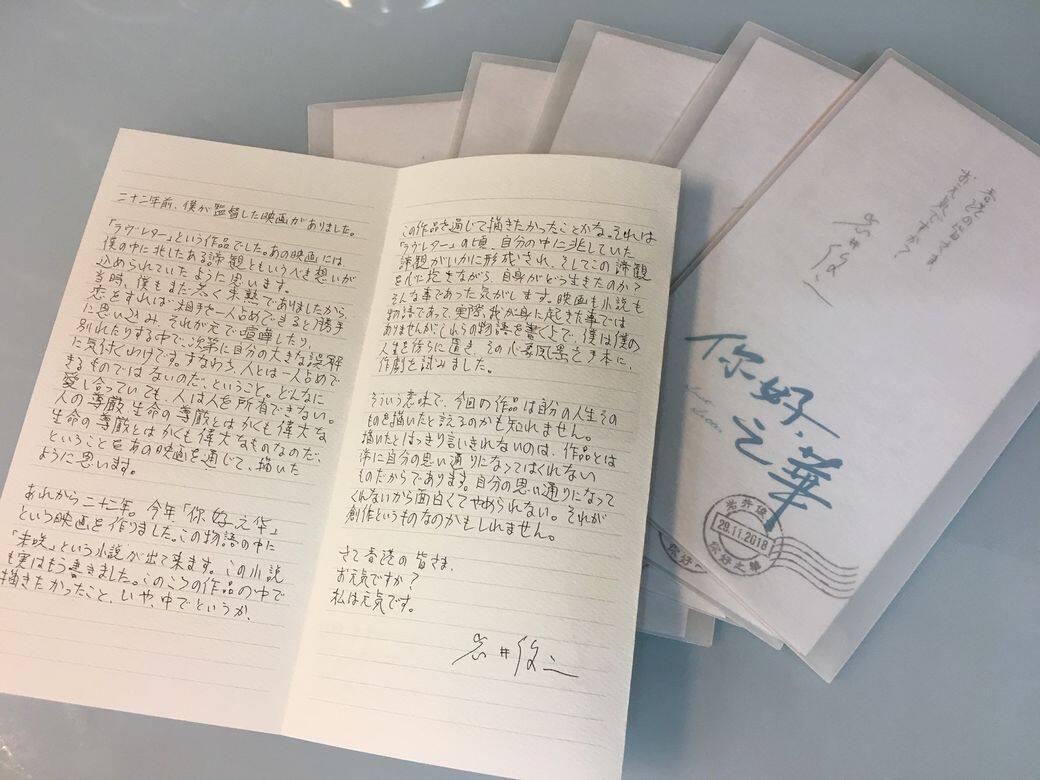 二十二年前、僕が監督した映画がありました。
「ラヴレター」という作品でした。あの映画には
僕の中に兆したある諦観ともいうべき想いが
込められていたように思います。
当時、僕もまだ若く未熟でありましたから、
恋をすれば相手を一人占めできると勝手
に思い込み、それが元で喧嘩したり、
別れたりする中で、次第に自分の大きな誤解
に気付くわけです。すなわち、人とは一人占めで
きるものではないのだ、ということ。どんなに
愛し合っていても、人は人を所有できない。
人の尊厳、生命の尊厳とはかくも偉大な
生命の尊厳とはかくも偉大なものなのだ、
ということをあの映画を通じて、描いた
ように思います。
あれから二十二年。今年「你好、之华」
という映画を作りました。この物語の中に
「未咲」という小説が出て来ます。この小説
も実はもう書きました。この二つの作品の中で
描きたかったこと、いや、中でというか、
この作品を通じて描きたかったことかな。それは
「ラヴレター」の頃、自分の中に兆していた
諦観がいかに形成され、そしてこの諦観
を心に抱きながら、自身がどう生きたのか?
そんな事であった気がします。映画も小説も
物語であって、実際、我が身に起きた事では
ありませんが、これらの物語を書く上で、僕は僕の
人生を傍らに置き、その心象風景を手本に、
作劇を試みました。
そういう意味で、今回の作品は自分の人生その
ものを描いたと言えるのかも知れません。
描いたとはっきり言いきれないのは、作品とは
常に自分の思い通りになってはくれない
ものだからであります。自分の思い通りになって
くれないから面白くてやめられない。それが
創作というものなのかもしれません。
さて香港の皆さま、
お元気ですか?
私は元気です。
岩井俊二
香港の皆さま
お元気ですか?
岩井俊二
你好，
之華
岩井俊二
29.11.2018
你好之華
你好